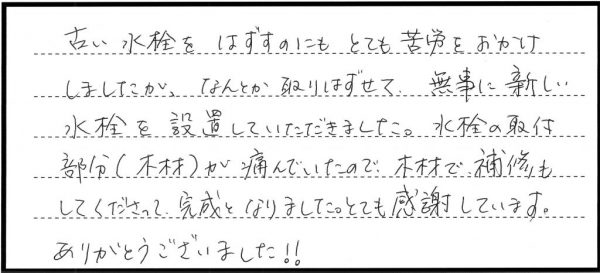 古い水栓をはずすのにもとても苦労をおかけ
しましたが、なんとか取りはずせて、無事に新しい
水栓を設置していただきました。水栓の取付
部分(木材)が痛んでいたので木材で補修も
してくださって、完成となりました。とても感謝しています。
ありがとうございました!!